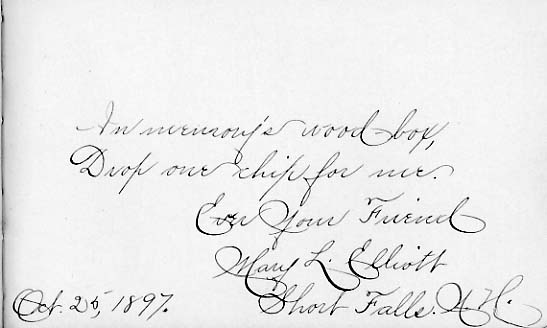 In memory's wood-box,
Drop one chip for me.
Ever Your Friend
Mary L. Elliott
Oct. 25, 1897. Short Falls. N.H.